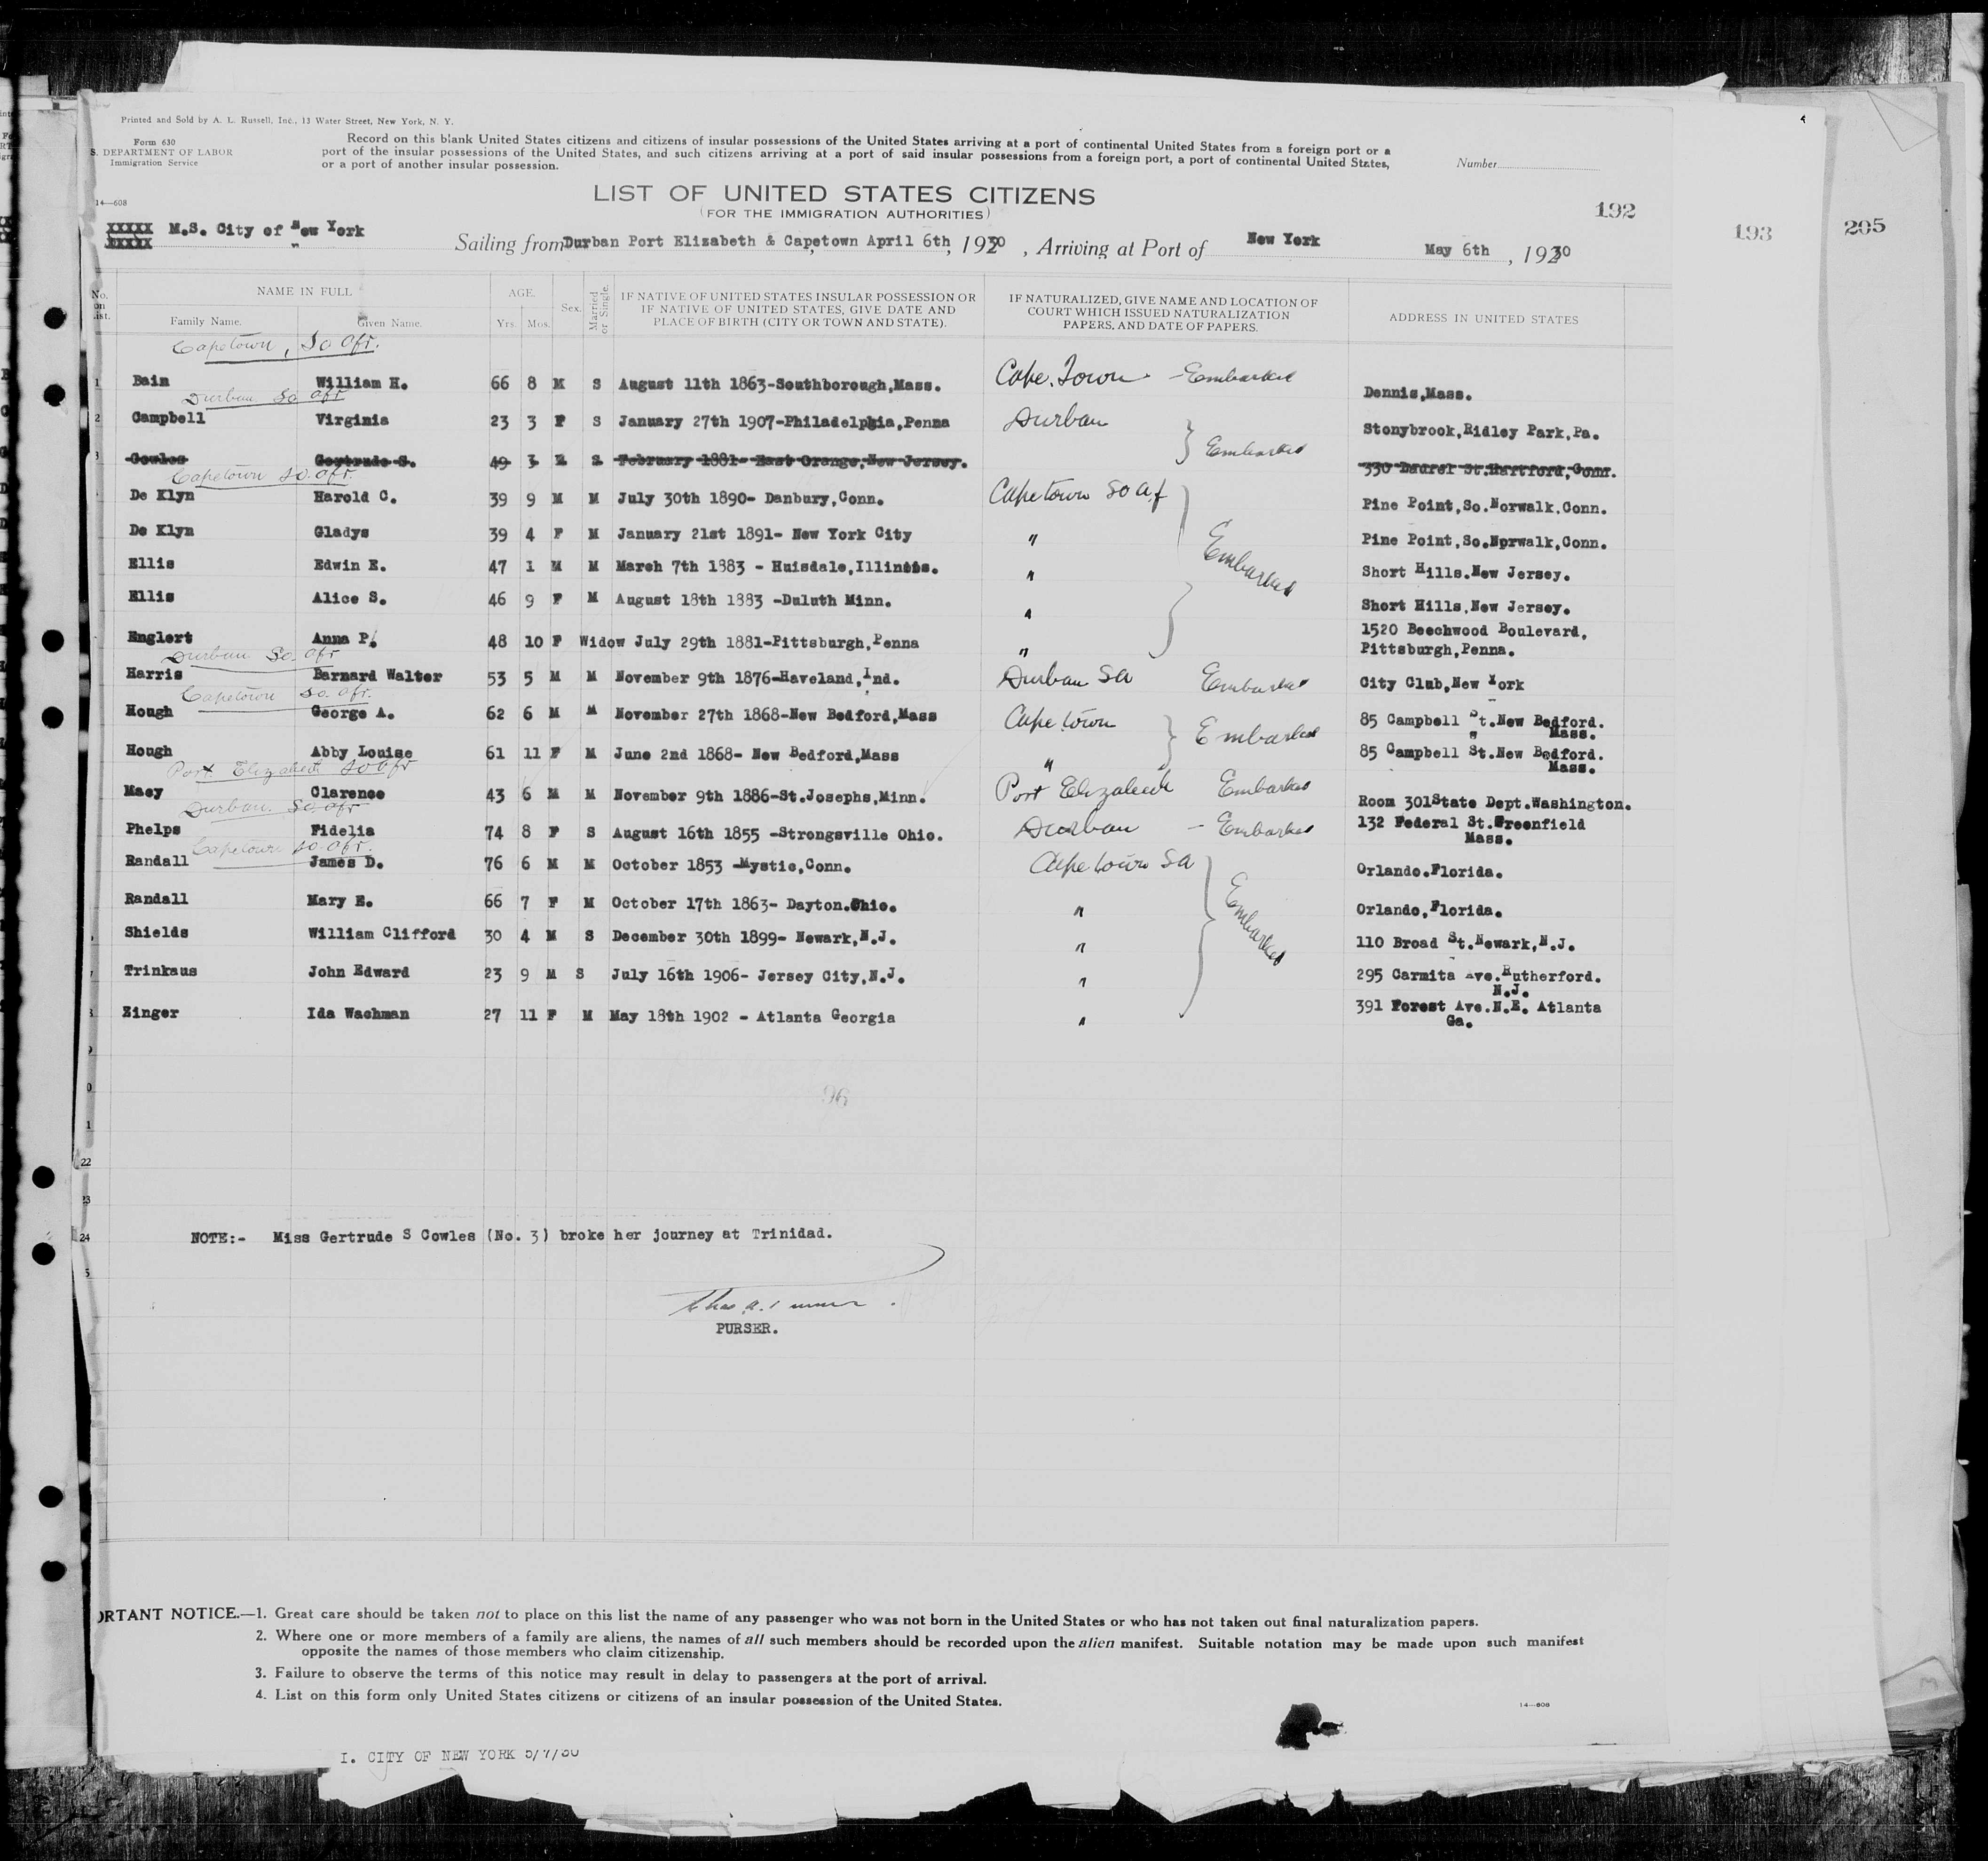 Printed and Sold by A. L. Russell, Inc., 13 Water Street, New York, N. Y.
Form 630
S. DEPARTMENT OF LABOR
Immigration Service
14—608
Record on this blank United States citizens and citizens of insular possessions of the United States arriving at a port of continental United States from a foreign port or a
port of the insular possessions of the United States, and such citizens arriving at a port of said insular possessions from a foreign port, a port of continental United States,
or a port of another insular possession.
Number
LIST OF UNITED STATES CITIZENS
(FOR THE IMMIGRATION AUTHORITIES)
192
193
205
XXXXX M.S. City of New York
Sailing from Durban Port Elizabeth & Capetown April 6th, 1930, Arriving at Port of New York May 6th, 1930
No. on List.
NAME IN FULL
Family Name. Given Name.
AGE.
Yrs. Mos.
Sex.
Married or Single.
IF NATIVE OF UNITED STATES INSULAR POSSESSION OR
IF NATIVE OF UNITED STATES, GIVE DATE AND
PLACE OF BIRTH (CITY OR TOWN AND STATE).
IF NATURALIZED, GIVE NAME AND LOCATION OF
COURT WHICH ISSUED NATURALIZATION
PAPERS, AND DATE OF PAPERS.
ADDRESS IN UNITED STATES
Capetown, So Afr.
1 Bain William H. 66 8 M S August 11th 1863-Southborough,Mass. Cape Town - Embarked Dennis,Mass.
Durban So Afr
2 Campbell Virginia 23 3 F S January 27th 1907-Philadelphia,Penna Durban Stonybrook,Ridley Park,Pa.
Embarked
3 Cowles Gertrude S. 49 3 F S February 1881- East Orange,New Jersey. 330 Laurel St.Hartford,Conn.
Capetown So. Afr.
De Klyn Harold C. 39 9 M M July 30th 1890- Danbury,Conn. Capetown So Af Pine Point,So.Norwalk.Conn.
De Klyn Gladys 39 4 F M January 21st 1891- New York City " Pine Point,So.Nprwalk,Conn.
Embarked
Ellis Edwin E. 47 1 M M March 7th 1883 - Huisdale,Illinois. " Short Hills.New Jersey.
Ellis Alice S. 46 9 F M August 18th 1883 -Duluth Minn. " Short Hills,New Jersey.
Englert Anna P. 48 10 F Widow July 29th 1881-Pittsburgh,Penna " 1520 Beechwood Boulevard.
Pittsburgh,Penna.
Durban So. Afr
Harris Barnard Walter 53 5 M M November 9th 1876-Haveland,Ind. Durban SA Embarked City Club,New York
Capetown So. Afr.
Hough George A. 62 6 M M November 27th 1868-New Bedford,Mass Cape town 85 Campbell St.New Bedford.
Mass.
Embarked
Hough Abby Louise 61 11 F M June 2nd 1868- New Bedford,Mass " 85 Campbell St.New Bedford.
Mass.
Port Elizabeth So Afr
Macy Clarence 43 6 M M November 9th 1886-St.Josephs,Minn. Port Elizabeth Embarked Room 301State Dept.Washington.
Durban. So Afr
Phelps Fidelia 74 8 F S August 16th 1855 -Strongsville Ohio. Durban - Embarked 132 Federal St.Greenfield
Mass.
Capetown So. Afr.
Randall James D. 76 6 M M October 1853 -Mystic,Conn. Cape town SA Orlando.Florida.
Randall Mary E. 66 7 F M October 17th 1863- Dayton.Ohio. " Orlando,Florida.
Embarked
Shields William Clifford 30 4 M S December 30th 1899- Newark,N.J. " 110 Broad St.Newark,N.J.
Trinkaus John Edward 23 9 M S July 16th 1906- Jersey City,N.J. " 295 Carmita Ave.Rutherford.
N.J.
Zinger Ida Wachman 27 11 F M May 18th 1902 - Atlanta Georgia " 391 Forest Ave.N.E. Atlanta
Ga.
96
22
23
24
NOTE:- Miss Gertrude S Cowles (No. 3) broke her journey at Trinidad.
PURSER.
ORTANT NOTICE.—1. Great care should be taken not to place on this list the name of any passenger who was not born in the United States or who has not taken out final naturalization papers.
2. Where one or more members of a family are aliens, the names of all such members should be recorded upon the alien manifest. Suitable notation may be made upon such manifest
opposite the names of those members who claim citizenship.
3. Failure to observe the terms of this notice may result in delay to passengers at the port of arrival.
4. List on this form only United States citizens or citizens of an insular possession of the United States.
14—608
I. CITY OF NEW YORK 5/7/30